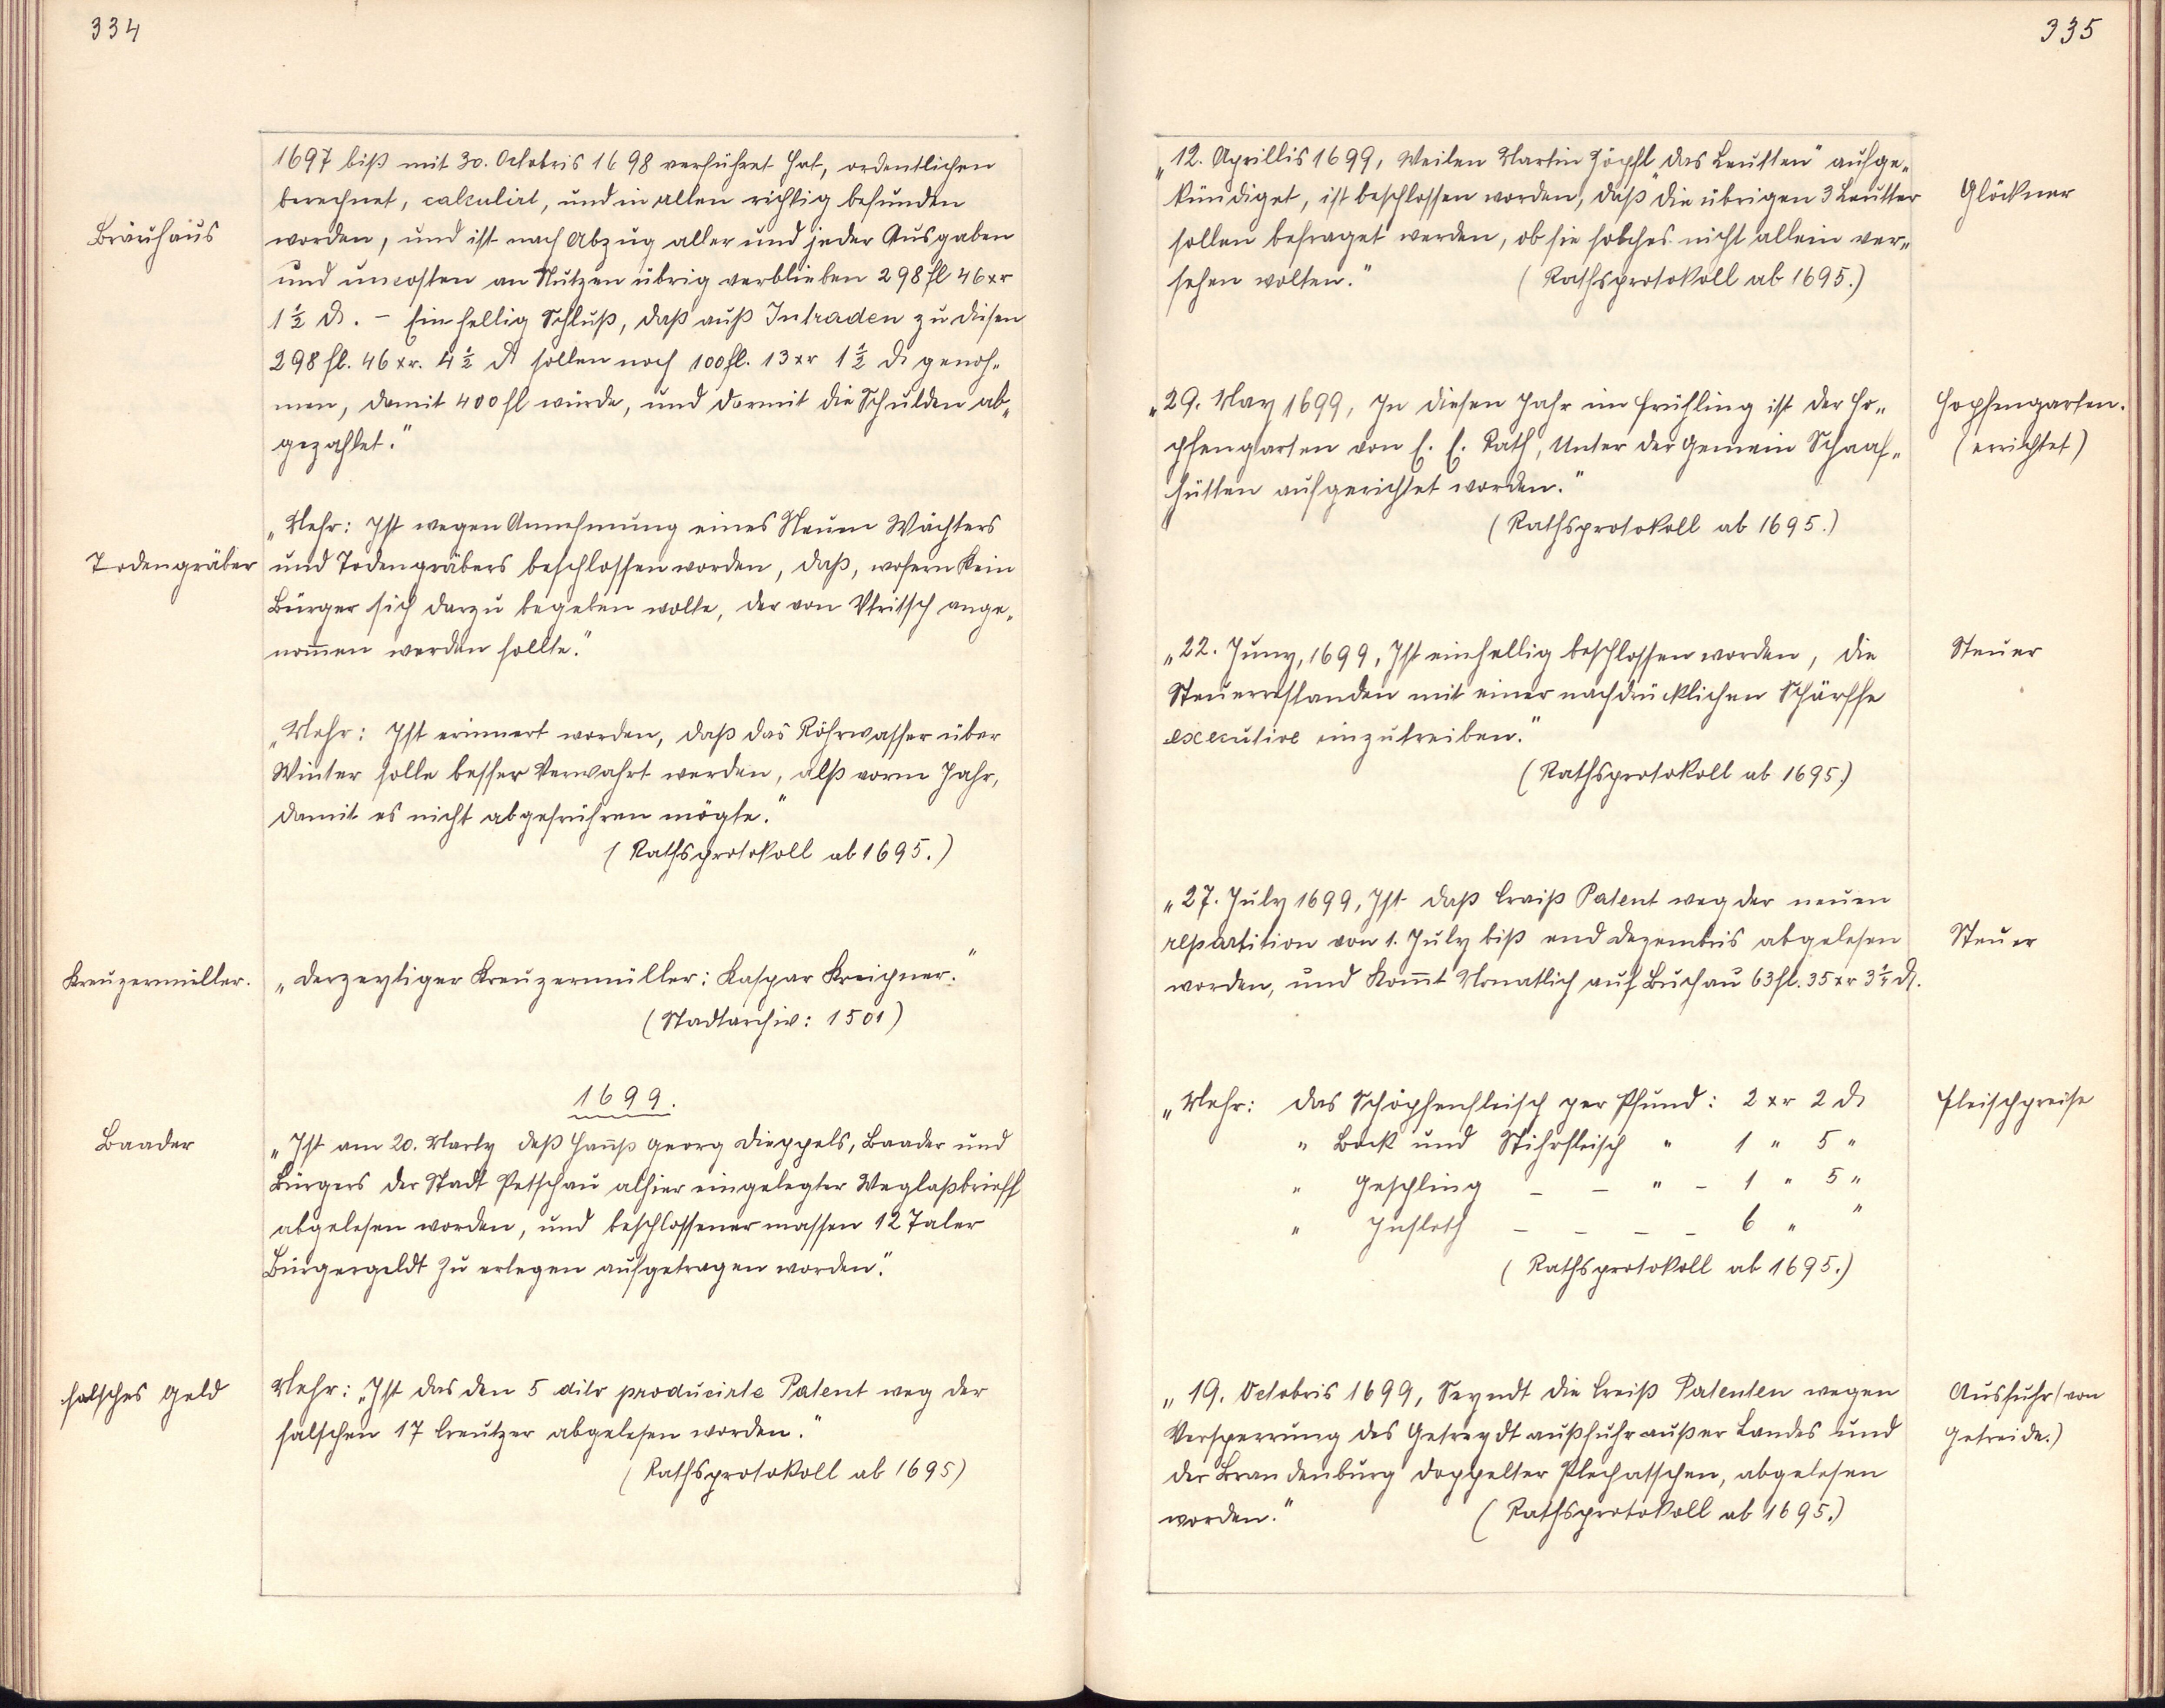 334
1697 biß mit 30. Octobris 1698 verführet hat, ordentlichen
berechnet, calculirt, und in allen richtig befunden
Bräuhaus
worden, und ist nach Abzug aller und jeder Ausgaben
und uncosten an Nutzen übrig verblieben 298 fl 46 xr
1 ½ d. – Einhellig Schluß, daß auß Intraden zu diesen
298 fl. 46 xr. 4 ½ d sollen noch 100 fl. 13 xr 1 ½ d genoh„
men, damit 400 fl würde, und darmit die Schulden ab„
gezahlet."
„Mehr: Ist wegen Annehmung eines Neuen Wächters
Todengräber
und Todengräbers beschlossen worden, daß, wofern kein
Bürger sich darzu begeben wolte, der von Utritsch ange„
nom̄en werden sollte."
„Mehr: Ist erinnert worden, daß das Röhrwasser über
Winter solle besser Verwahrt werden, alß vorm Jahr,
damit es nicht abgefrühren mögte."
(Rathsprotokoll ab 1695.)
Kreuzermüller.
„Derzeytiger Kreuzermüller: Kaspar Kreipner."
(Stadtarchiv: 1501)
1699.
Baader
„Ist am 20. Marty deß Han̄ß Georg Dieppels, Baader und
Bürgers der Stadt Petschau alhier eingelegter Weglaßbrieff
abgelesen worden, und beschlossener massen 12 Taler
Bürgergeldt zu erlegen aufgetragen worden."
falsches Geld
Mehr: „Ist das den 5 dito producirte Patent weg der
falschen 17 Creutzer abgelesen worden."
(Rathsprotokoll ab 1695)
335
„12. Aprillis 1699, Weilen Martin Höpfl „das Leutten" aufge„
Glöckner
kündiget, ist beschlossen worden, daß die übrigen 3 Leutter
sollen befraget werden, ob sie solches nicht allein ver„
sehen wolten." (Rathsprotokoll ab 1695.)
„29. May 1699, In diesen Jahr im Frühling ist der Ho„
Hopfengarten.
pfengarten von E. E. Rath, Unter der Gemein Schaaf„
(errichtet)
hütten aufgerichtet worden."
(Rathsprotokoll ab 1695.)
„22. Juny, 1699, Ist einhellig beschlossen worden, die
Steuer
Steuerrestanden mit einer nachdrücklichen Schärffe
executive einzutreiben."
(Rathsprotokoll ab 1695.)
„27. July 1699, Ist daß Creiß Patent weg der neuen
repartition von 1. July biß end Dezembris abgelesen
Steuer
worden, und kom̄t Monatlich auf Buchau 63 fl. 35 xr 3 ½ d.
„Mehr: Das Schöpsenfleisch per Pfund: 2 xr 2 d
Fleischpreise
" Bock und Stihrfleisch " 1 " 5 "
" Geschling – – " – 1 " 5 "
" Insleth – – – – 6 " "
(Rathsprotokoll ab 1695.)
„19. Octobris 1699, Seyndt die Creiß Patenten wegen
Ausfuhr (von
Versperrung des Getreydt außfuhr außer Landes und
Getreide.)
der Brandenburg doppelter Plechatschen, abgelesen
worden." (Rathsprotokoll ab 1695.)